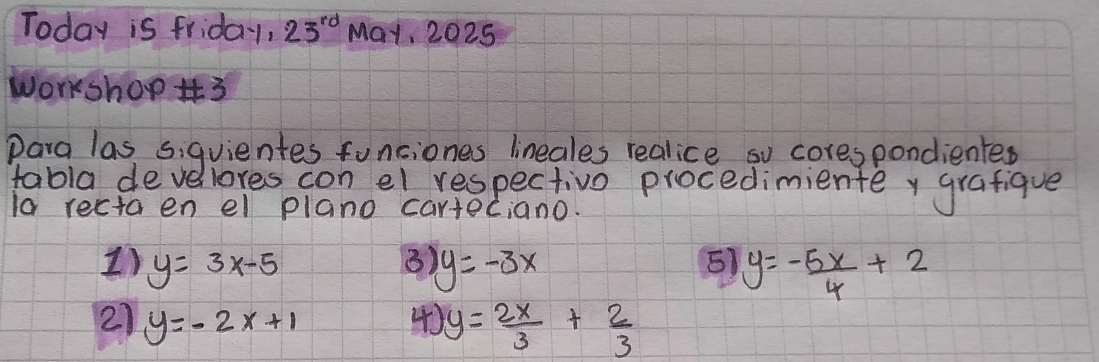 Today is friday, 23rd May, 2025
Workshop #3
Para las siguientes funciones lineales realice su corespondientes
tabla de velores con el respectivo procedimiente y grafique
la recta en el plano carteciano.
1) y = 3x-5 3) y = -3x 5) y = -5x/4 + 2
2) y = -2x+1 4) y = 2x/3 + 2/3